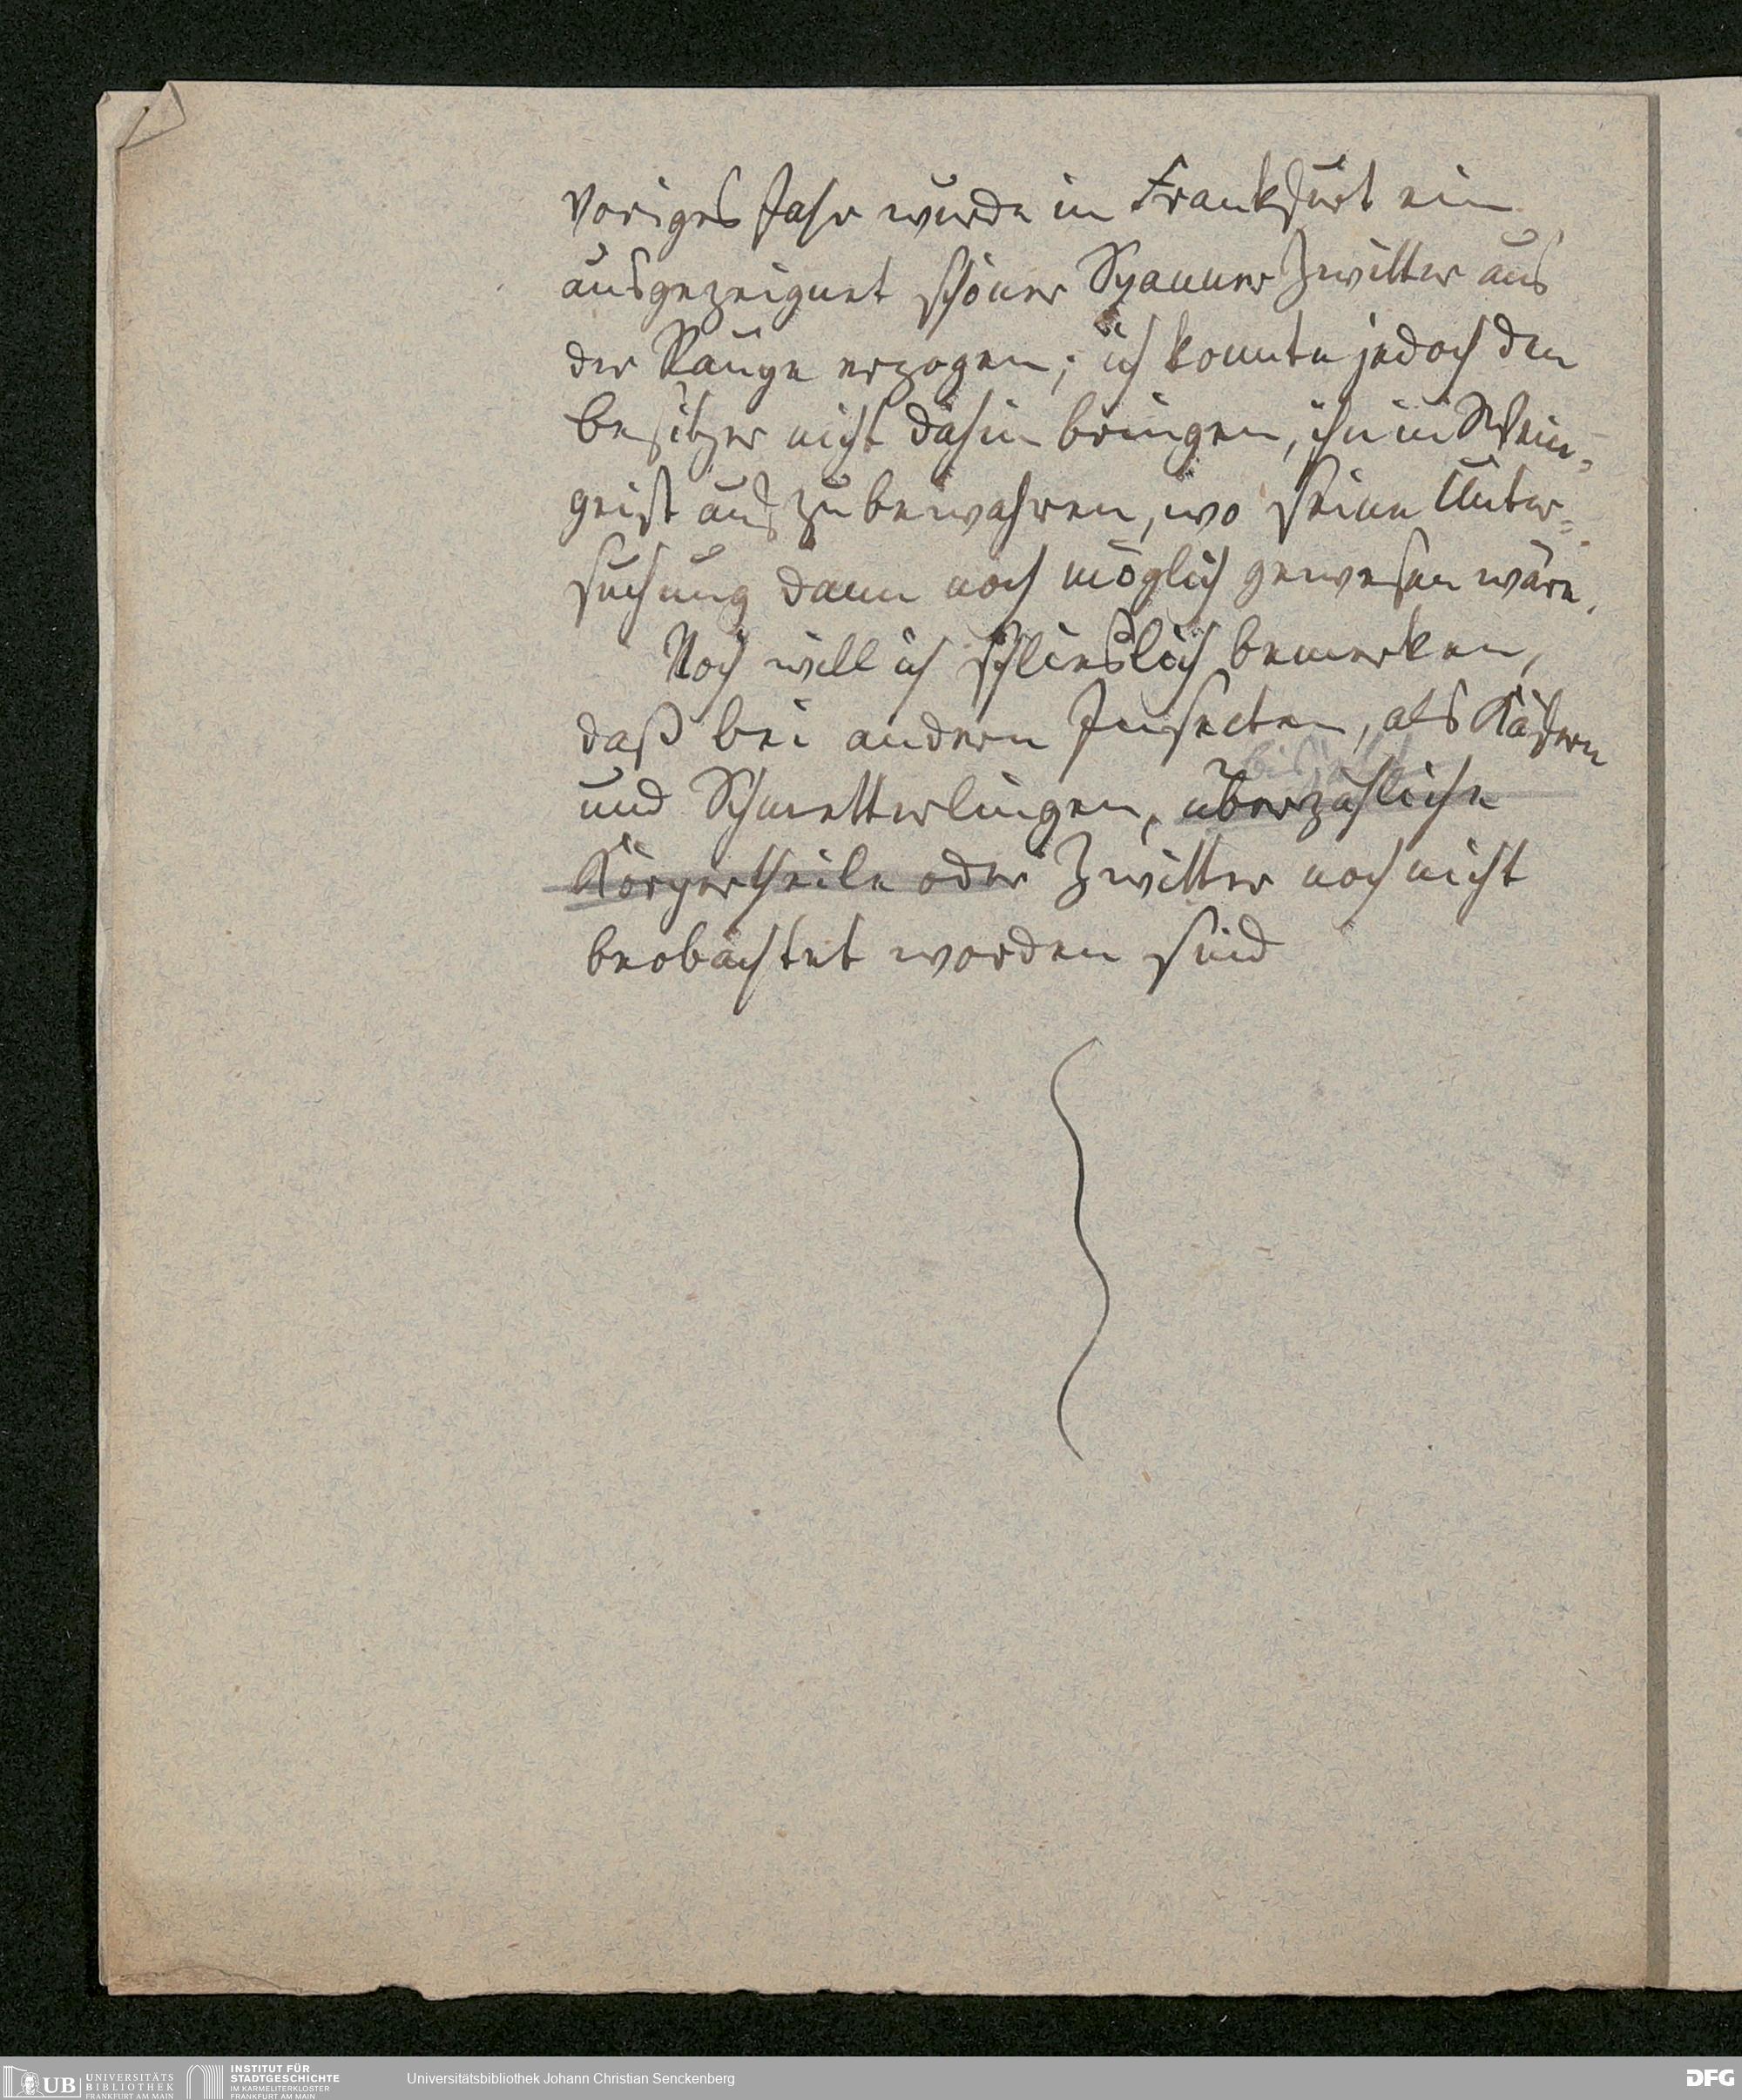 Voriges Jahr wurde in Frankfurt ein
ausgezeignet schöner Spanner Zwitter aus
der Raupe erzogen; ich konnte jedoch den
Besitzer nicht dahin bringen, ihn in Wein-
geist aufzubewahren, wo seine Unter=
suchung dann noch möglich gewesen wäre.
Noch will ich schließlich bemerken,
daß bei andern Insecten, als Käfern
bis jetzt
und Schmetterlingen, überzählige
Körpertheile oder Zwitter noch nicht
beobachtet worden sind
UB UNIVERSITÄTS
BIBLIOTHEK
FRANKFURT AM MAIN
INSTITUT FÜR
STADTGESCHICHTE
IM KARMELITERKLOSTER
FRANKFURT AM MAIN
Universitätsbibliothek Johann Christian Senckenberg
DFG